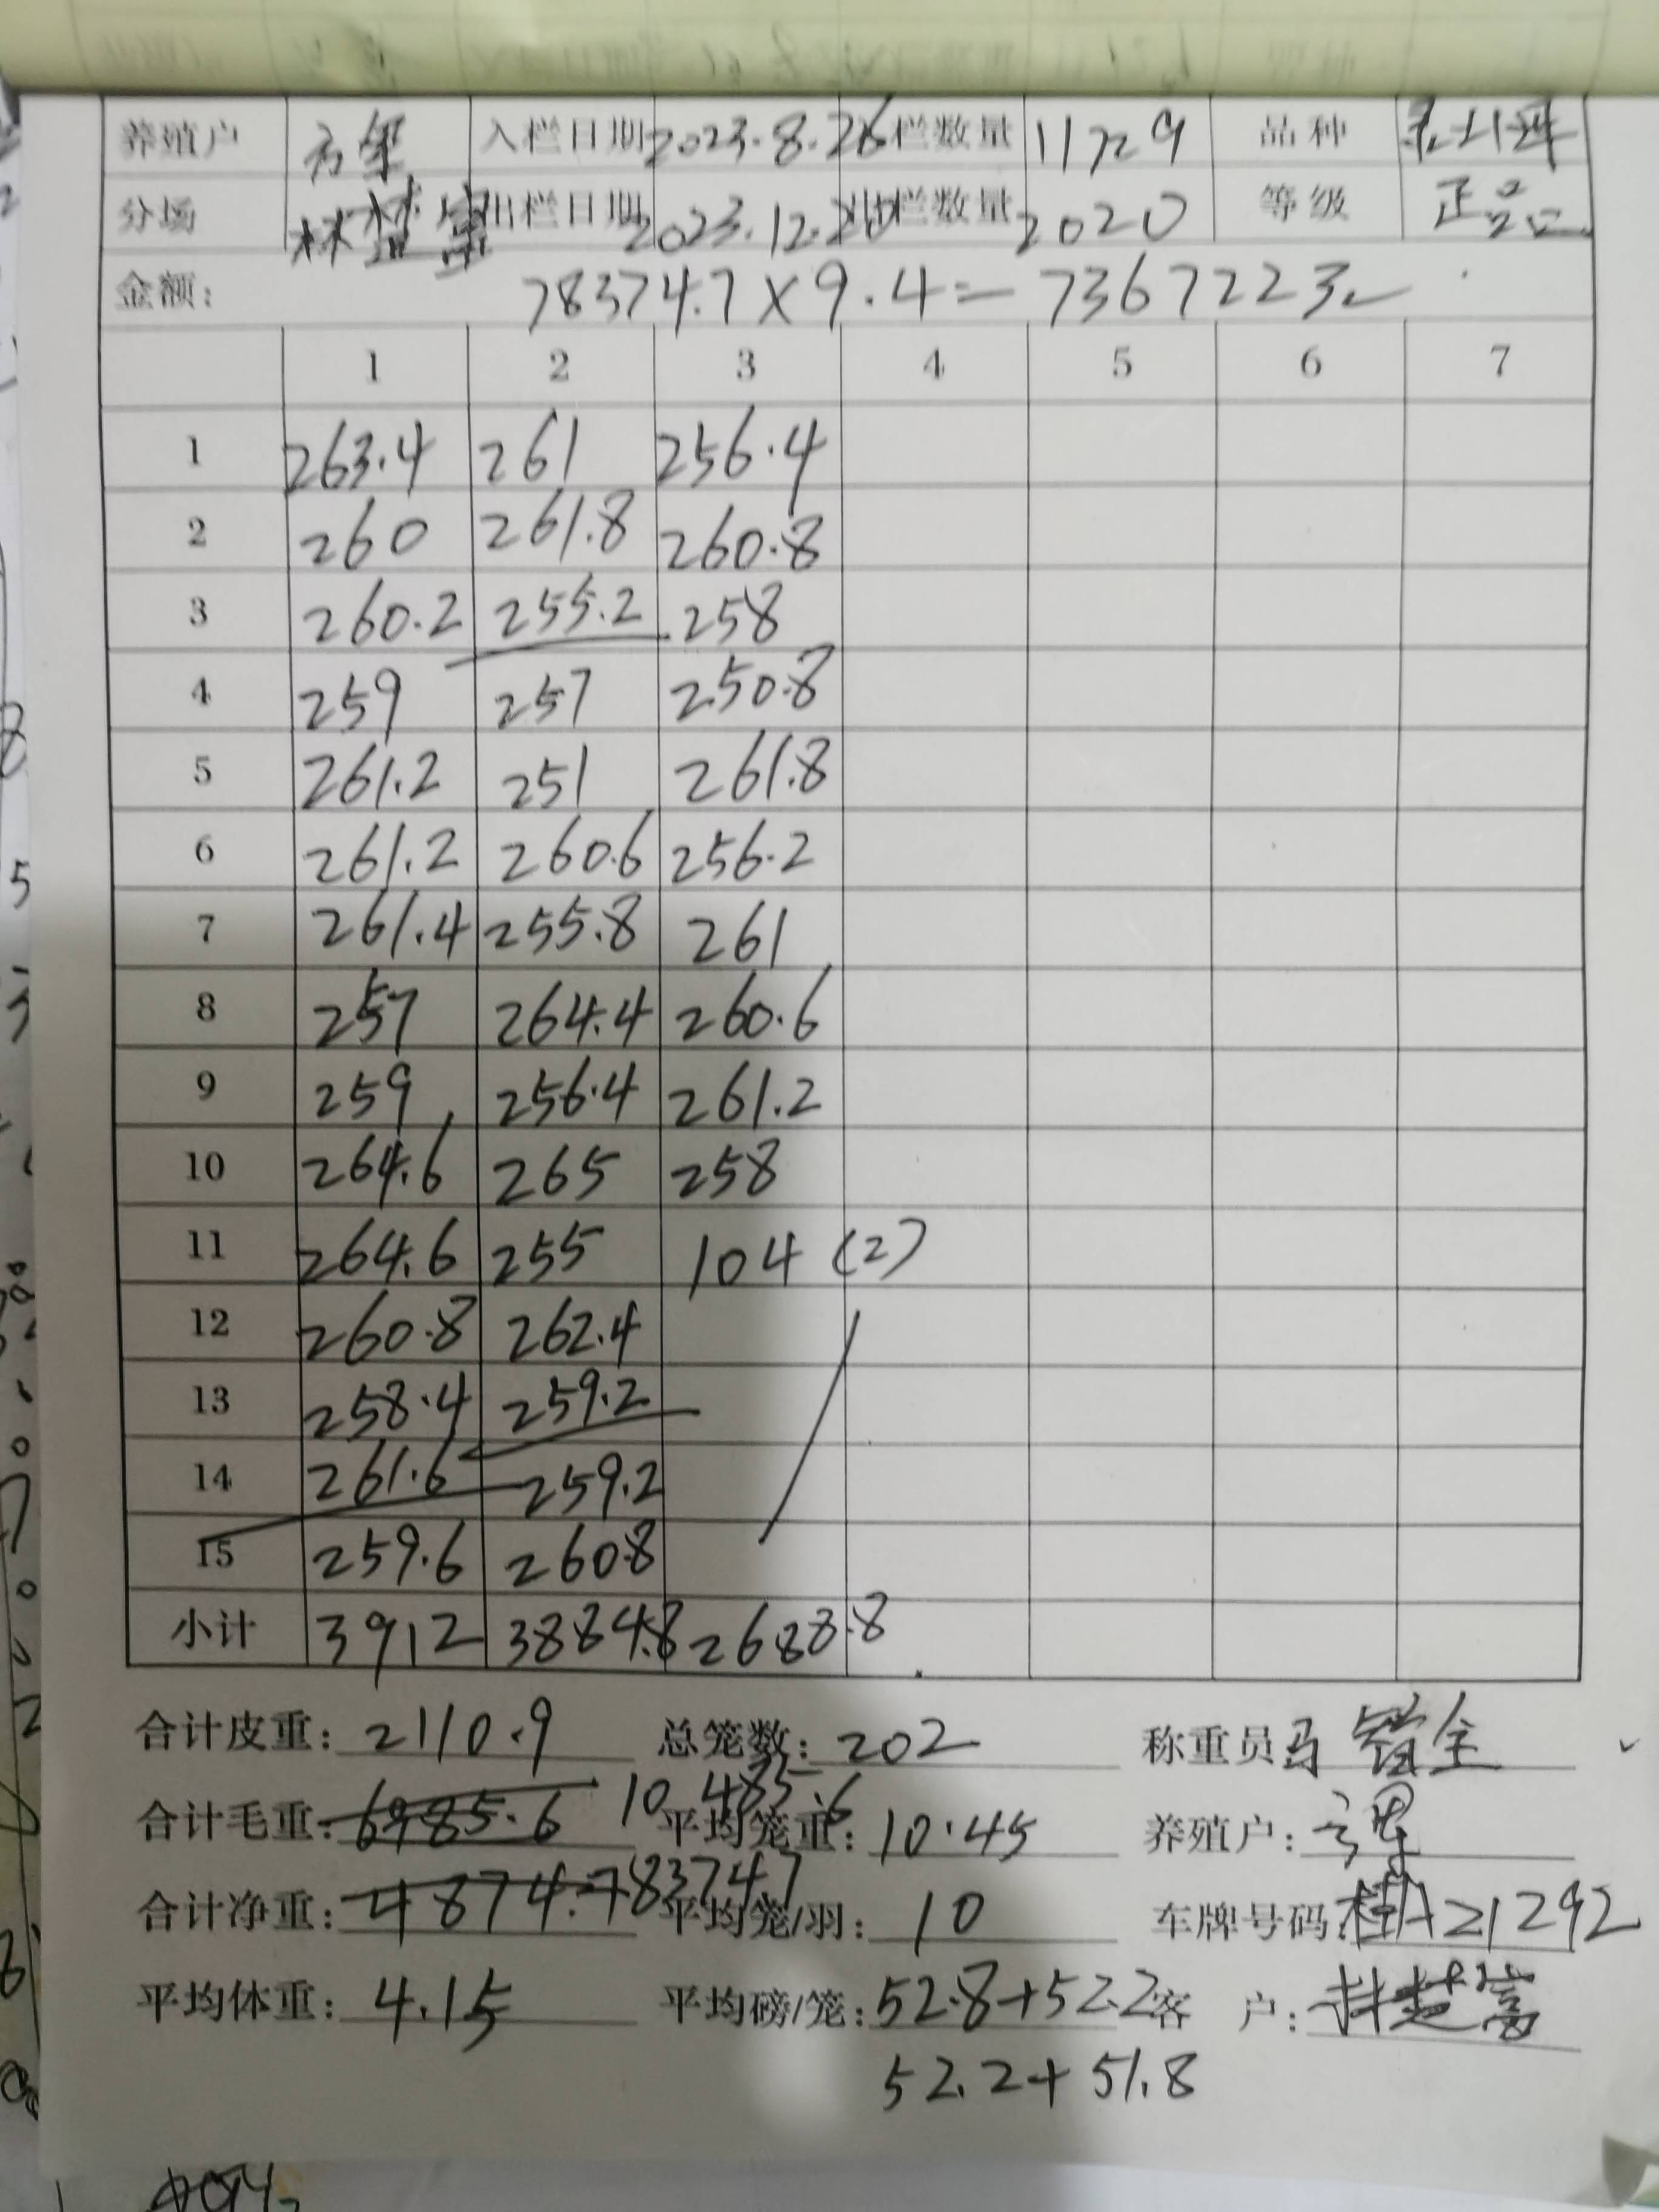 养殖户 入栏日期 2023.8.26 栏数量 11729 品种
分场 林楚富 出栏日期 2023.12.20 出栏数量 2020 等级 正品
金额: 78374.7×9.4=7367223
1 2 3 4 5 6 7
1 263.4 261 256.4
2 260 261.8 260.8
3 260.2 255.2 258
4 259 257 250.8
5 261.2 251 261.8
6 261.2 260.6 256.2
7 261.4 255.8 261
8 257 264.4 260.6
9 259 256.4 261.2
10 264.6 265 258
11 264.6 255 104 (2)
12 260.8 262.4
13 258.4 259.2
14 261.6 259.2
15 259.6 260.8
小计 3912 3884.8 2688.8
合计皮重: 2110.9 总笼数: 202 称重员
合计毛重: 6985.6 10485.6 平均笼重: 10.45 养殖户:
合计净重: 4874.7 83747 平均笼/羽: 10 车牌号码: 桂A21292
平均体重: 4.15 平均磅/笼: 52.8+52.2 客 户: 林楚富
52.2+51.8